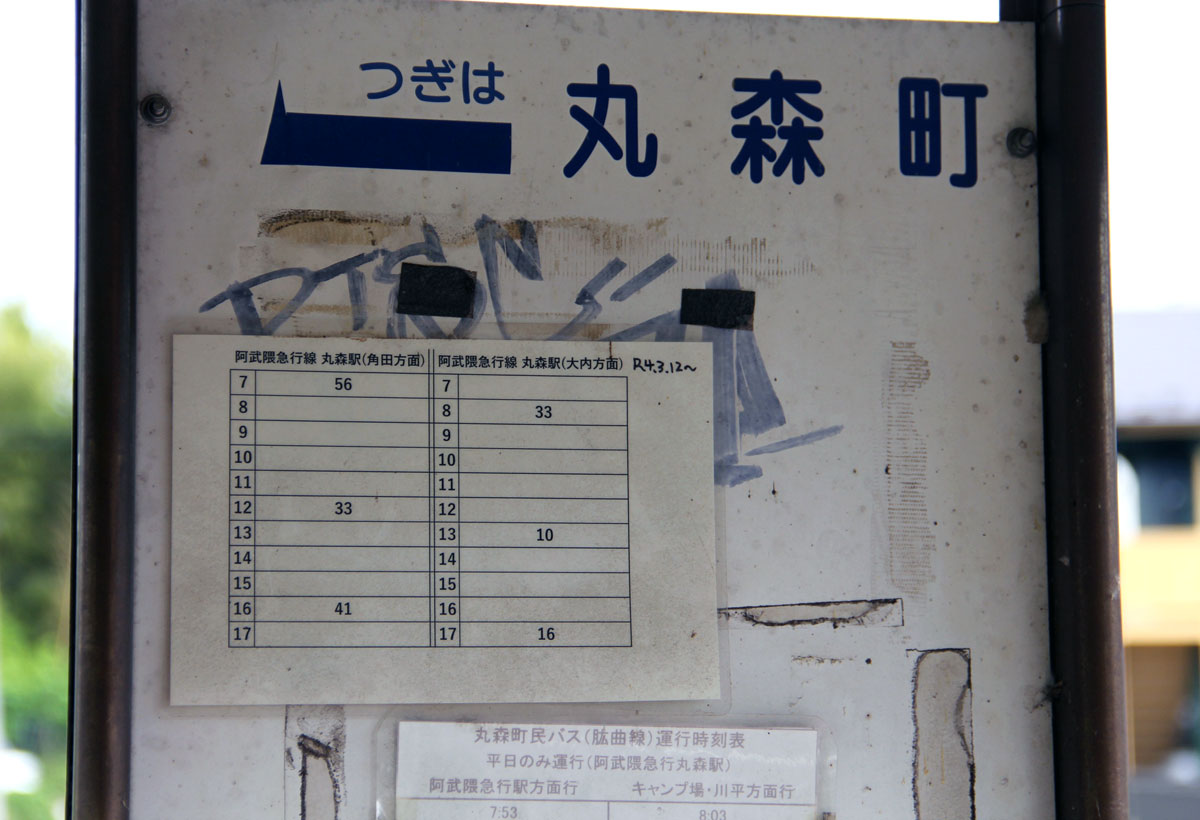 つぎは
丸森町
阿武隈急行線 丸森駅(角田方面) 阿武隈急行線 丸森駅(大内方面) R4.3.12~
7 56 7
8 8 33
9 9
10 10
11 11
12 33 12
13 13 10
14 14
15 15
16 41 16
17 17 16
丸森町民バス(肱曲線)運行時刻表
平日のみ運行(阿武隈急行丸森駅)
阿武隈急行駅方面行 キャンプ場・川平方面行
7:53 8:03